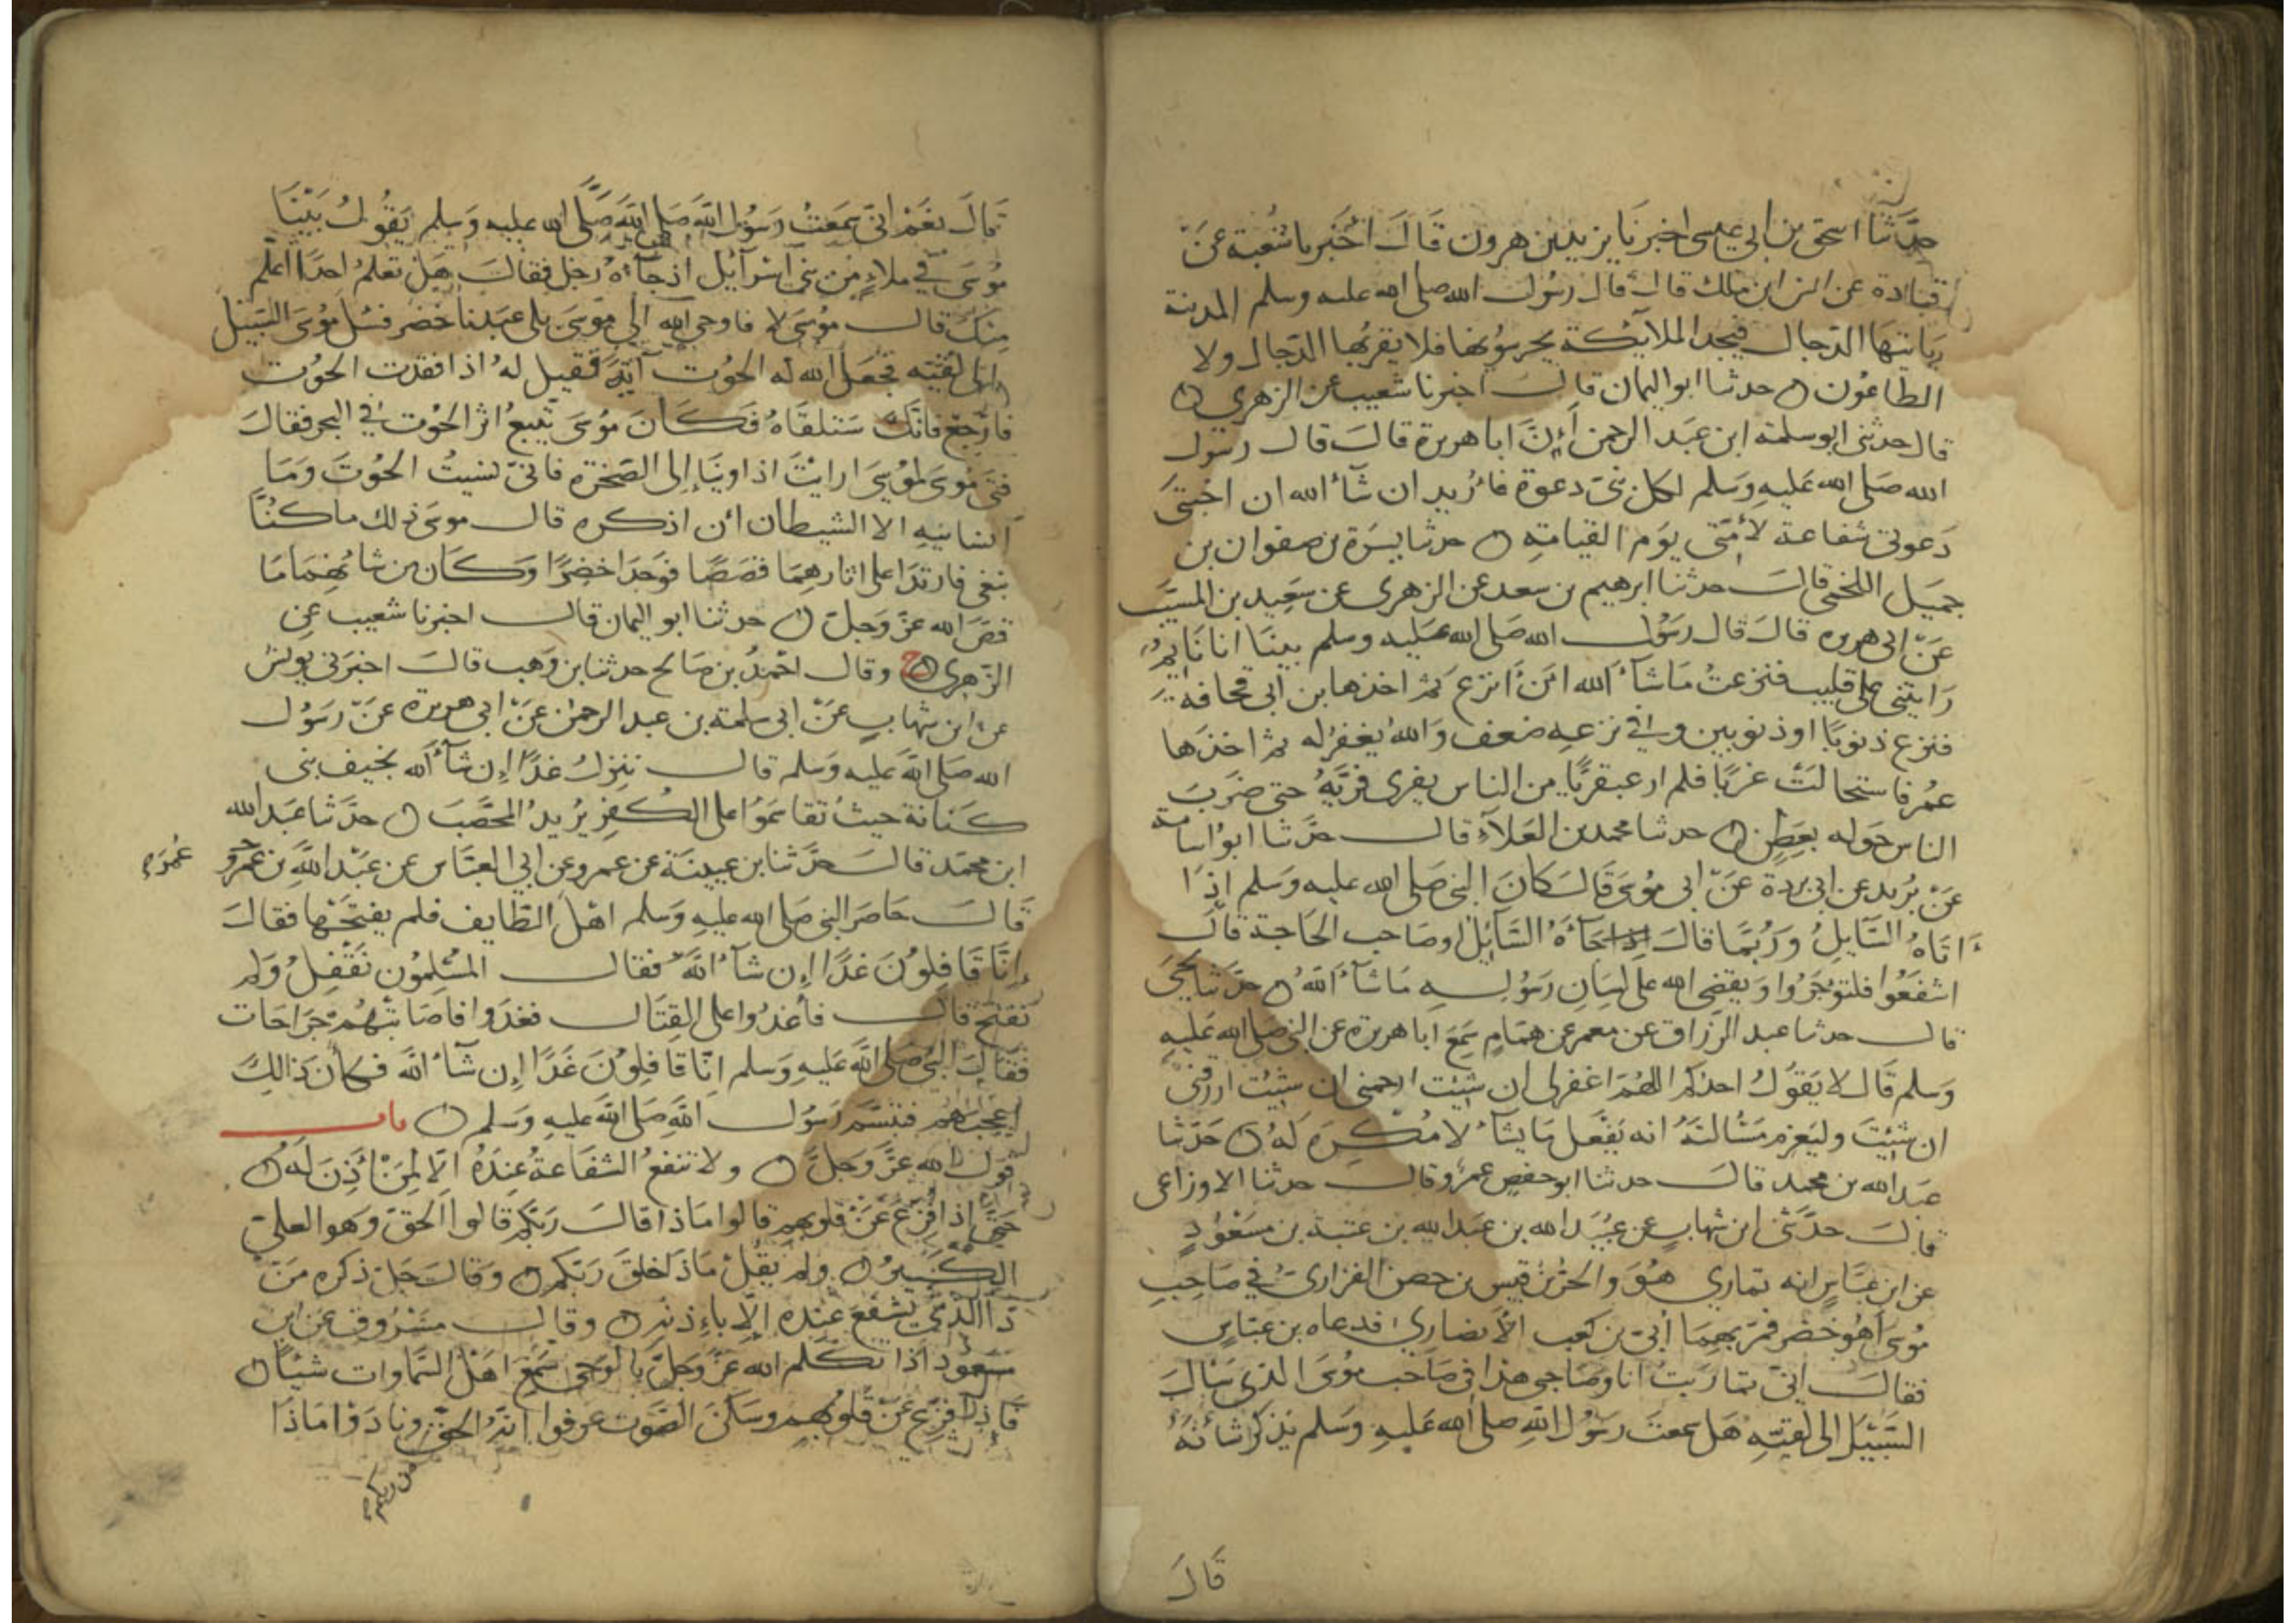 حدثنا اسحق بن ابي عيسى اخبرنا يزيد بن هرون قَالَ اخبرنا شعبة عن
قتادة عن انس ابن ملك قال قال رسُول الله صلى الله عليه وسلم المدينة
ياتيها الدّجال فيجد الملايكة يحرسُونها فلا يقربُها الدّجال ولا
الطاعُون ه حدثنا ابو اليمان قالَ اخبرنا شعيب عن الزهري ه
قال حدثني ابو سلمة ابن عَبد الرحمن أنَّ ابا هريرة قالَ قال رسول
الله صَلى الله عَليهِ وَسَلم لكل نبيّ دعوة فاُريد ان شآءَ الله ان اختبئَ
دَعوتي شفاعة لأمَّتي يومَ القيامةِ ه حدثنا يسَرَة بن صفوان بن
جميَل اللخمي قالَ حدثنا ابرهيم بن سعد عن الزهري عن سَعِيد بن المسيَّب
عَنّ ابي هريره قالَ قال رسُول الله صَلى الله عَليه وسلم بينَا انا نَايمٌ
رَايتني على قليب فنزعتُ مَا شآءَ الله انّ اَنزع ثم اخذها بن ابي قحافة
فنزع ذنوبًا اوذنوبين وفي نزعِه ضعف وَالله يَغفرُ له ثم اخذَها
عمُر فاستحالتْ غربًا فلم ار عبقريًّا من الناس يفري فريَّهُ حتى ضرَبَ
الناس حَوله بعَطنٍ ه حدثنا محمد بن العَلآءِ قال حَدَّثنا ابوُ اسَامة
عَنّ بُريد عن ابي بردة عَنّ ابي مُوسَى قَالَ كانَ النبي صَلى الله عليه وسَلم اذَا
اَتاهُ السَّايلُ وَرُبَّمَا قالَ جَآءَهُ السَّآيلُ اوصَاحب الحَاجة قالَ
اشفَعُوا فلتوُجَرُوا وَيقضي الله على لسَانِ رَسُولهِ مَا شآءَ اللهُ ه حدَّثنا يحيَى
قال حدثنا عبد الرّزاق عن معمر عن همّامٍ سَمِعَ ابا هريرة عن النبي صلى الله عَليهِ
وَسلم قَال لا يَقوُلُ احدكم اللهُمَّ اغفرلي ان شئتَ ارحمني ان شئت ارزقني
ان شئتَ وليَعزِم مَسْالتهُ انه يفعَل مَا يشآءُ لا مُكْرِهَ لهُ ه حَدَّثنا
عبَد الله بن محمد قالَ حدثنا ابو حفصٍ عمَرُو قالَ حدثنا الاوزاعي
قالَ حدَّثني ابن شهابٍ عن عُبَيْد الله بن عَبد الله بن عتبة بن مَسعُودٍ
عن ابن عبَّاسٍ انه تماري هُوَ وَالحرّ بن قيس بن حصن الفزاريُّ في صَاحِبِ
مُوسَى أهُوَ خَضر فمَرّ بهِمَا اُبيّ بن كعب الأنصاري فدعاه بن عبَّاسٍ
فقالَ انيّ تمارَيتُ انا وصَاحبي هذا في صَاحب مُوسَى الذي سَالَ
السَّبيْلَ الى لُقيّهِ هَل سمعتَ رسُول اللهِ صلى الله عَليهِ وَسَلم يَذكرُ شَانَهُ
قَالَ
قَالَ نعَمْ انّي سَمعتُ رسَوُل اللهَ صَلى اللهَ صَلَّى الله عليه وَسلم يَقُولُ بَيْنَا
مُوسَى في ملاءٍ من بني اسرآيل اذ جآءهُ رَجل فقالَ هَل تعلمُ احدًا اعلم
منكَ قال مُوسَى لا فاوحى الله الى مُوسَى بلى عبدنا خضر فسَل مُوسَى السّبيل
الى لُقيّه فجعل الله له الحوُت آيةً وَقيل لهُ اذا فقدت الحوُت
فارجعْ فانّكَ سَتلقاهُ فكَانَ مُوسَى يَتْبعُ اثر الحوُت في البحر فقالَ
فتى مُوسَى لموُسَى ارايْتَ اذ اوينَا إلى الصَخرة فانيّ نسيتُ الحوُتَ وَمَا
انسَانيهِ الا الشيطان ان اذكره قال موسى ذلك ما كنُّا
نبغي فارتدّا على اثارهِمَا قصَصًا فوَجدا خضِرًا وَكان من شانهِمَا مَا
قصَّ الله عَزَّ وَجلَّ ه حدثنا ابو اليمان قال اخبرنا شعيب عن
الزّهري ه ح وقال احمدُ بن صَالح حدثنا بن وَهب قالَ اخبَرني يونسُ
عن ابن شهابٍ عَنّ ابي سَلمة بن عبد الرحمن عَنّ ابي هريرة عَنّ رَسَوُل
الله صَلى اللهَ عَليه وَسلم قال ننزلُ غدًا إن شآءَ الله بخيف بني
كنَانة حيثُ تقاسَمُوا على الكُفرِ يُريدُ المحصَّبَ ه حدَّثنا عَبد الله
ابن محمّد قالَ حَدَّثنا بن عيينَة عن عمرو عن ابي العبَّاس عن عَبْد اللهِ بن عَمرو
عُمَرَ
قَالَ حَاصَر النبي صَلى الله عليهِ وَسَلم اهْل الطّايف فلم يفتحْها فقالَ
إنَّا قَافِلوُنَ غَدًا إن شآءَ اللهُ فقال المسْلِمُون نَقْفلُ وَلم
نفتح قالَ فاغدُوا على القِتَال فغَدَوا فاصَابتْهُمْ جرَاحَات
فقالَ النبيُّ صَلى اللهَ عَليهِ وَسلم انّا قافِلوُنَ غَدًا إن شآءَ الله فكأن ذَالكَ
اَعجبَهم فتبسَّم رَسوُل اللهِ صَلى اللهَ عليهِ وَسَلم ه باب
قول الله عزَّ وَجلَّ ه ولا تنفعُ الشفَاعةُ عندَهُ الا لمنْ أذِنَ لهُ ه
حتى اذا فزّع عَنْ قلوبهم قالوا مَاذا قالَ رَبكم قالوا الحَقّ وَهو العَليّ
الكَبيرُ ه ولم يَقلْ مَاذا خلقَ رَبكم ه وَقالَ جَل ذكره مَنْ
ذا الَّذي يَشفعَ عنده الا باذنه ه وقال مَسْرُوق عَن ابن
مَسعُود اذا تكلم الله عزَّ وَجلّ بالوَحي سَمعَ اهْل السَّماوات شيئًا ه
فَاذا فزّع عَنْ قلوبهم وسَكنَ الصَّوت عرفوا انّهُ الحقّ ونادَوْا مَاذا